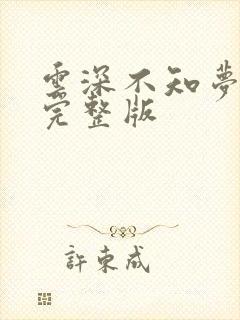 雲深不知夢
完整版
許東成